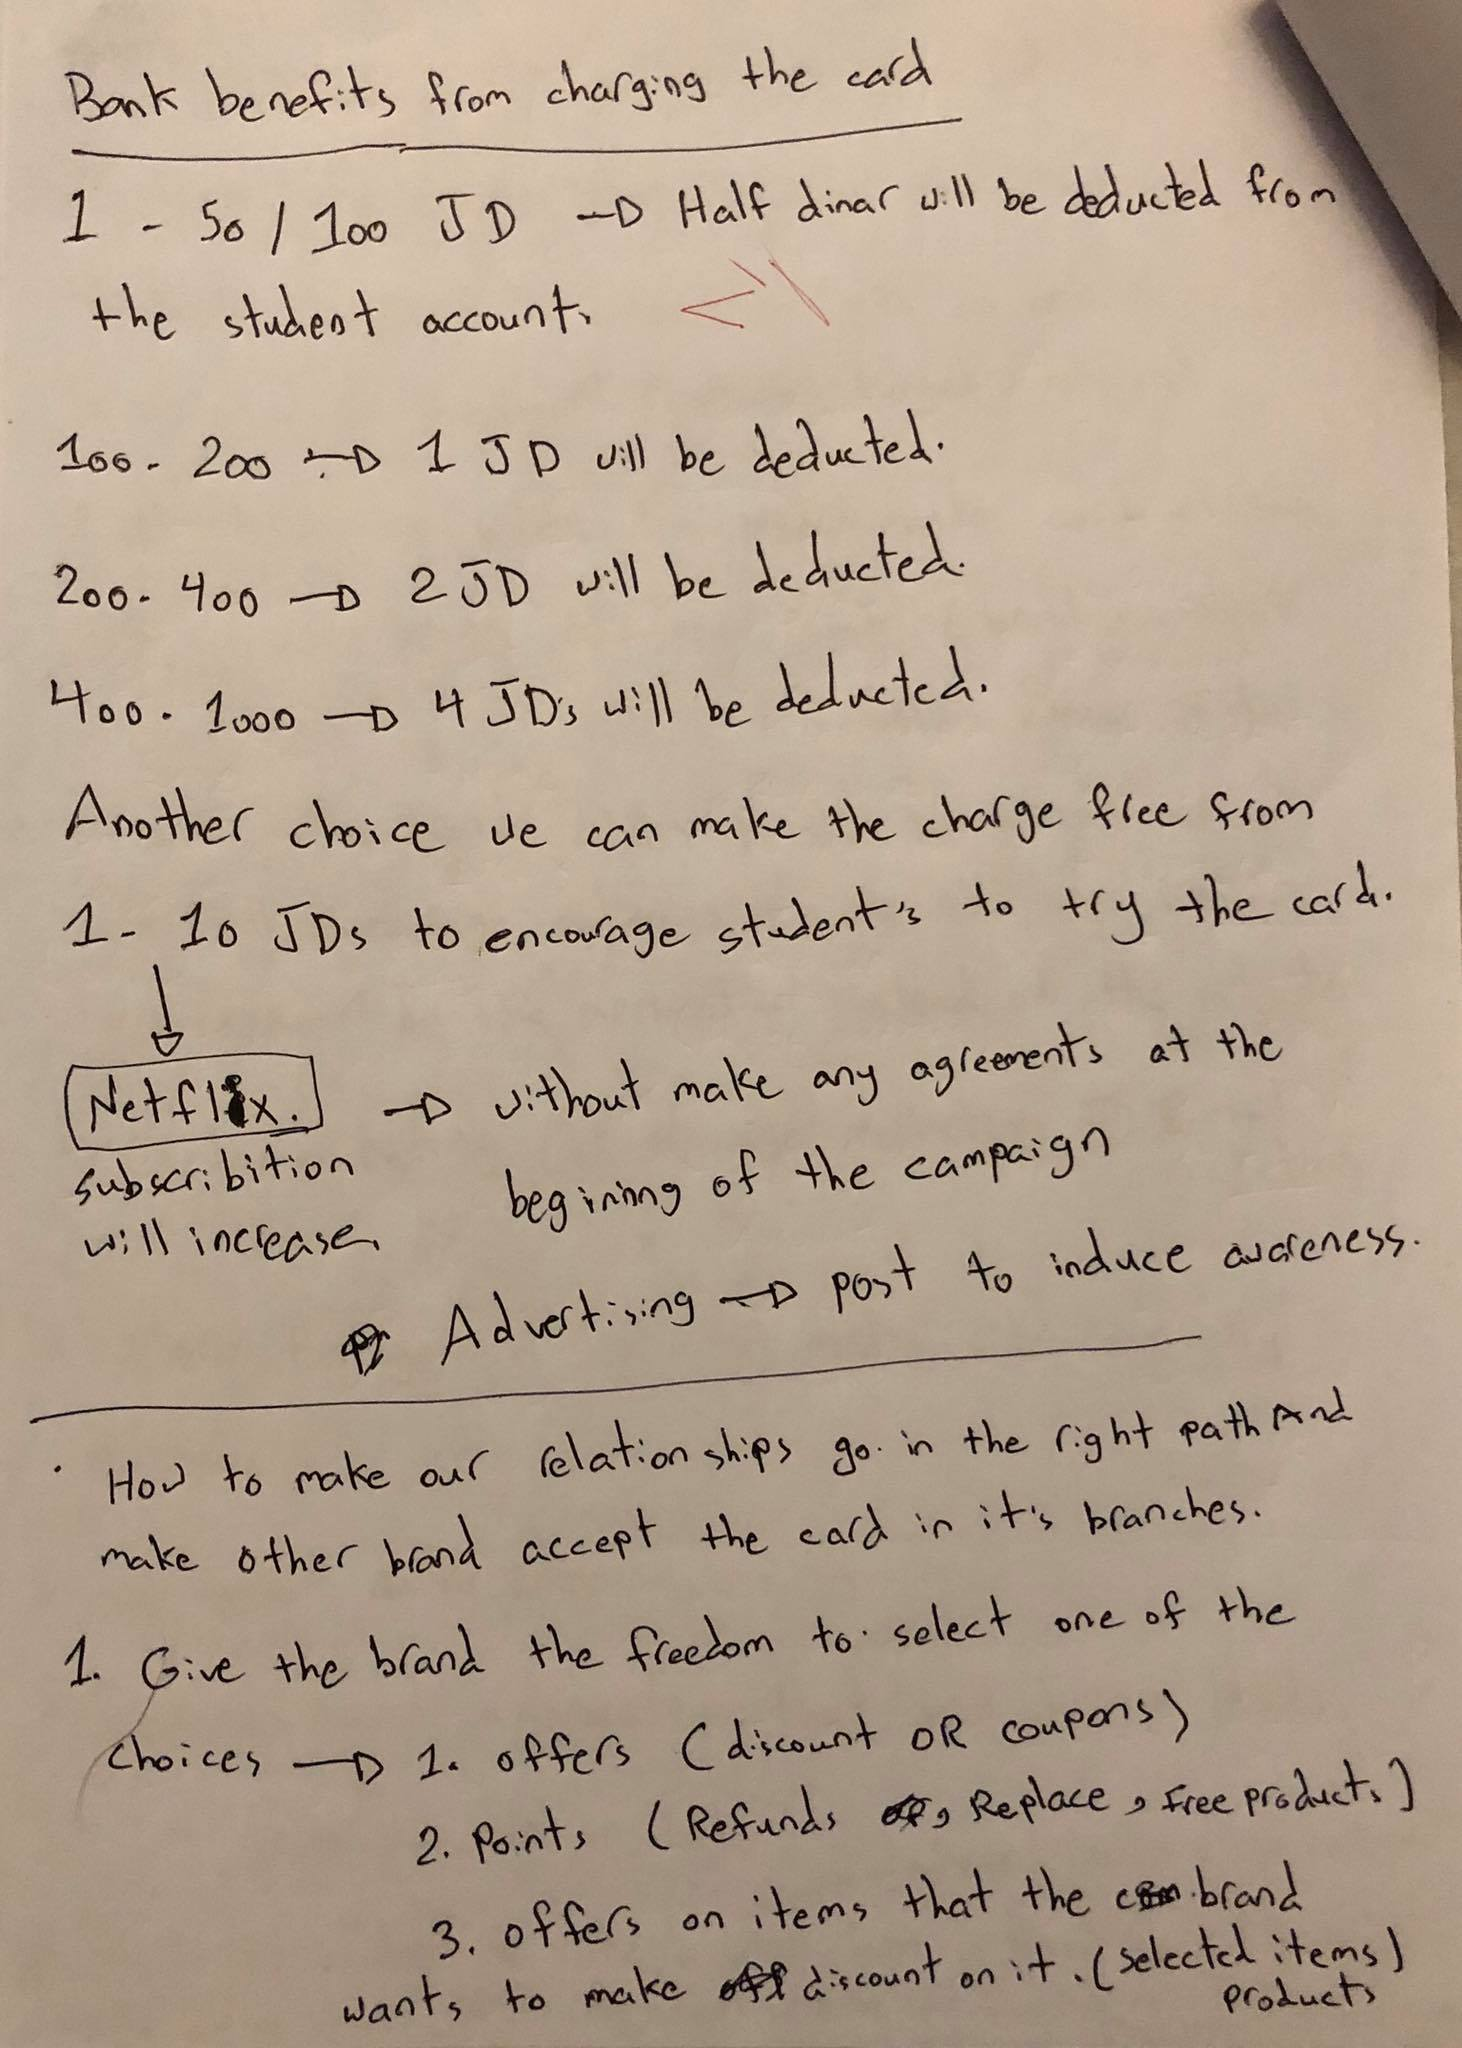 Bank benefits from charging the card
1 - 50 / 100 JD → Half dinar will be deducted from
the student account.
100 - 200 → 1 JD will be deducted.
200 - 400 → 2 JD will be deducted.
400 - 1000 → 4 JD's will be deducted.
Another choice we can make the charge free from
1 - 10 JDs to encourage student's to try the card.
Netflix. → without make any agreements at the
subscribition beginning of the campaign
will increase.
Advertising → post to induce awareness.
• How to make our relationships go in the right path And
make other brand accept the card in it's branches.
1. Give the brand the freedom to select one of the
choices → 1. offers (discount OR coupons)
2. Points (Refunds, Replace, Free products)
3. offers on items that the brand
wants to make discount on it. (selected items)
products